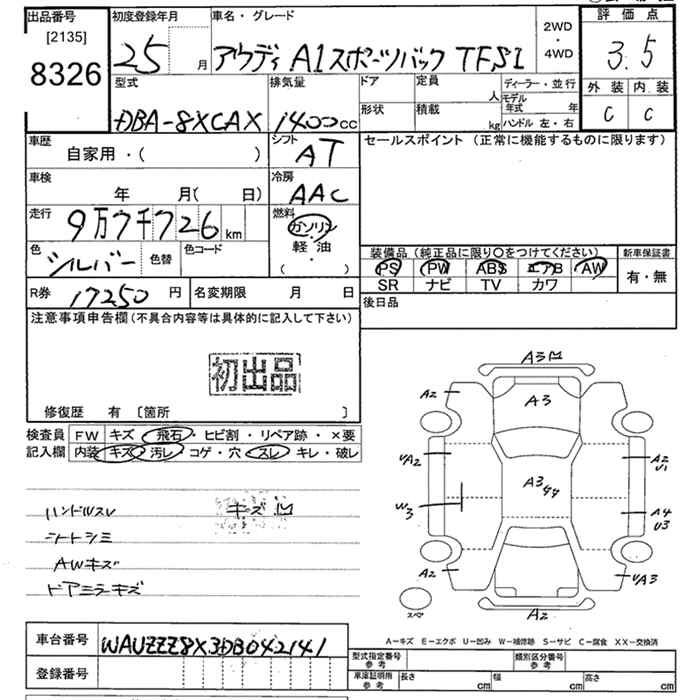 出品番号
[2135]
8326
初度登録年月
25 月
車名・グレード
アウディ A1スポーツバック TFSI
2WD
・
4WD
評価点
3.5
外装 内装
C C
型式
DBA-8XCAX
排気量
1400cc
ドア
形状
定員
人
積載
kg
ディーラー・並行
モデル年式 年
ハンドル 左・右
車歴
自家用・( )
シフト
AT
車検
年 月( 日)
冷房
AAC
走行
9万7千726km
燃料
ガソリン
軽油
( ・ )
色
シルバー
色替
色コード
セールスポイント (正常に機能するものに限ります)
装備品 (純正品に限り○をつけてください)
PS PW ABS エアB AW
SR ナビ TV カワ
新車保証書
有・無
R券 17250 円
名変期限 月 日
後日品
注意事項申告欄(不具合内容等は具体的に記入して下さい)
初出品
修復歴 有 [箇所 ]
検査員
記入欄
FW キズ・飛石・ヒビ割・リペア跡・×要
内装 キズ・汚レ・コゲ・穴・スレ・キレ・破レ
ハンドルスレ
キズ凹
シートシミ
AWキズ
ドアミラーキズ
A3凹
A2
A3
A2
A2
U1
A3
W3
A4
U3
A2
A3
A2
スペア
A-キズ E-エクボ U-凹み W-補修跡 S-サビ C-腐食 XX-交換済
車台番号
WAUZZZ8X3DB042141
登録番号
型式指定番号
参考
類別区分番号
参考
車庫証明用
参考
長さ cm
幅 cm
高さ cm